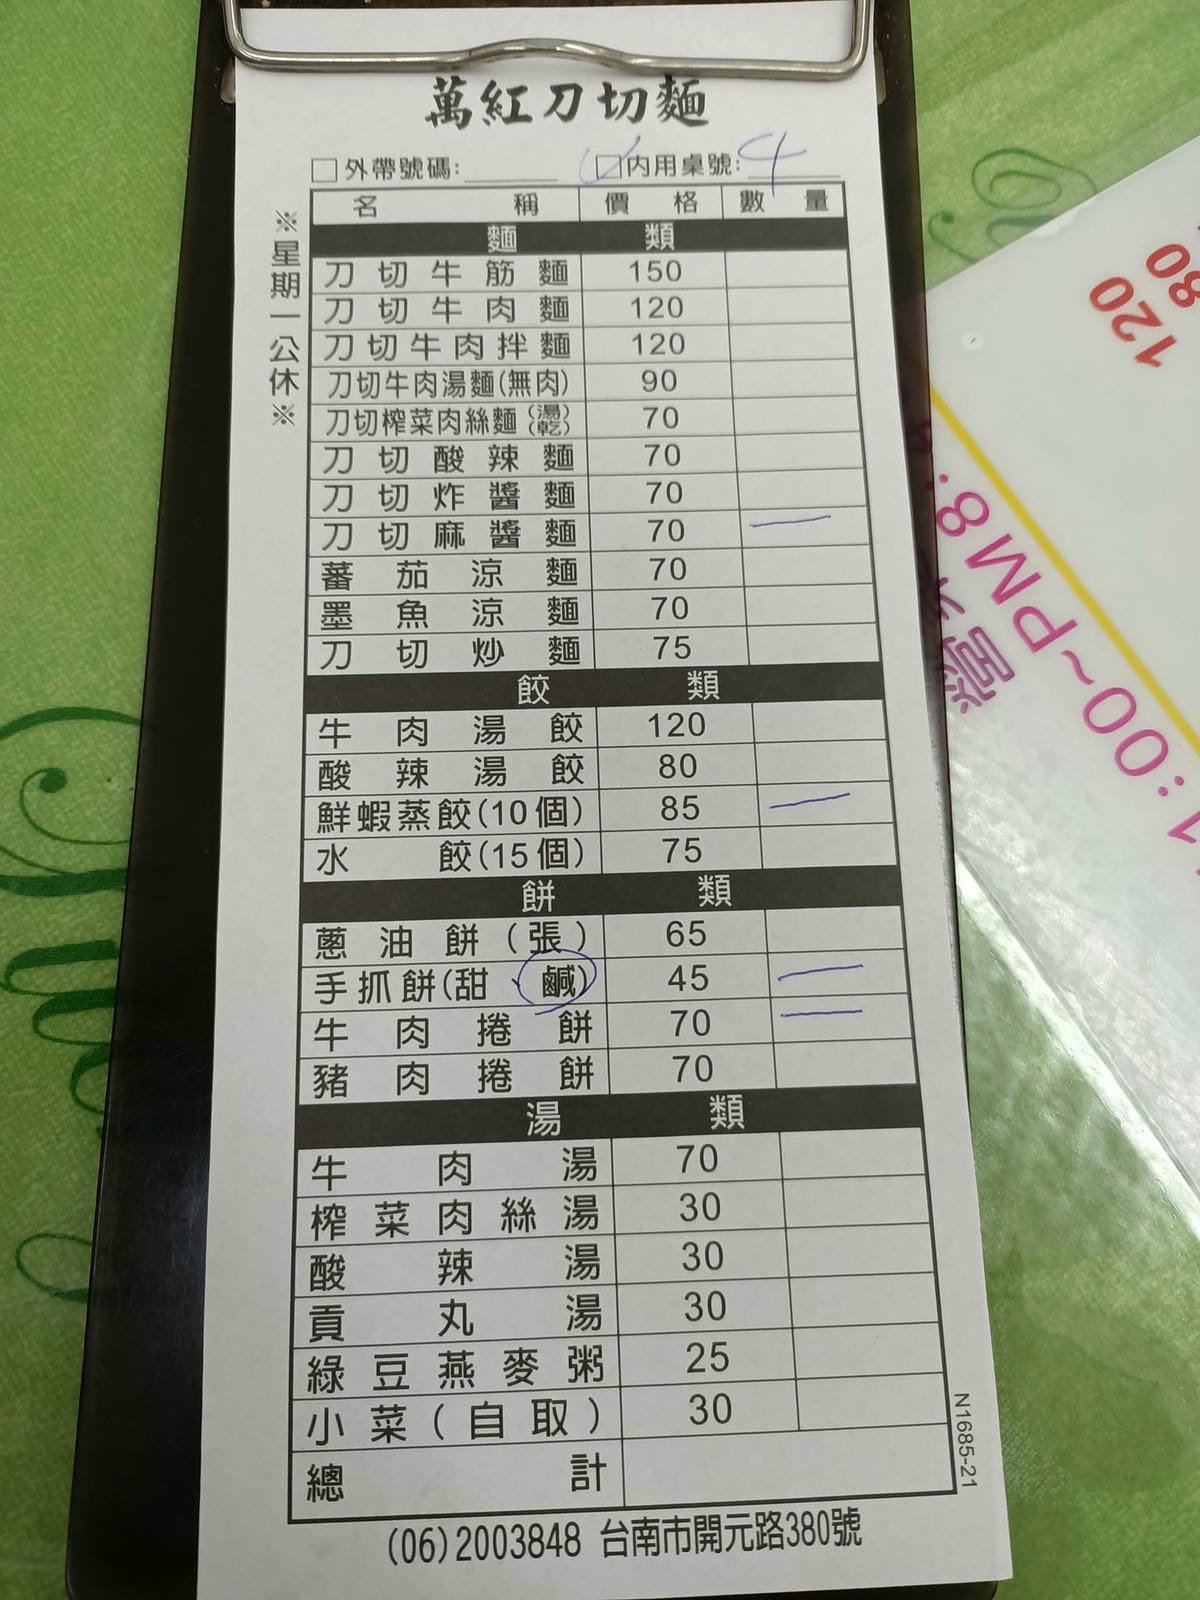 萬紅刀切麵
□外帶號碼: □內用桌號: 4
※星期一公休※
名稱 價格 數量
麵類
刀切牛筋麵 150
刀切牛肉麵 120
刀切牛肉拌麵 120
刀切牛肉湯麵(無肉) 90
刀切榨菜肉絲麵(湯)(乾) 70
刀切酸辣麵 70
刀切炸醬麵 70
刀切麻醬麵 70 一
蕃茄涼麵 70
墨魚涼麵 70
刀切炒麵 75
餃類
牛肉湯餃 120
酸辣湯餃 80
鮮蝦蒸餃(10個) 85 一
水餃(15個) 75
餅類
蔥油餅(張) 65
手抓餅(甜、鹹) 45 一
牛肉捲餅 70 一
豬肉捲餅 70
湯類
牛肉湯 70
榨菜肉絲湯 30
酸辣湯 30
貢丸湯 30
綠豆燕麥粥 25
小菜(自取) 30
總計
N1685-21
(06)2003848 台南市開元路380號
120
80
1:00~PM8: